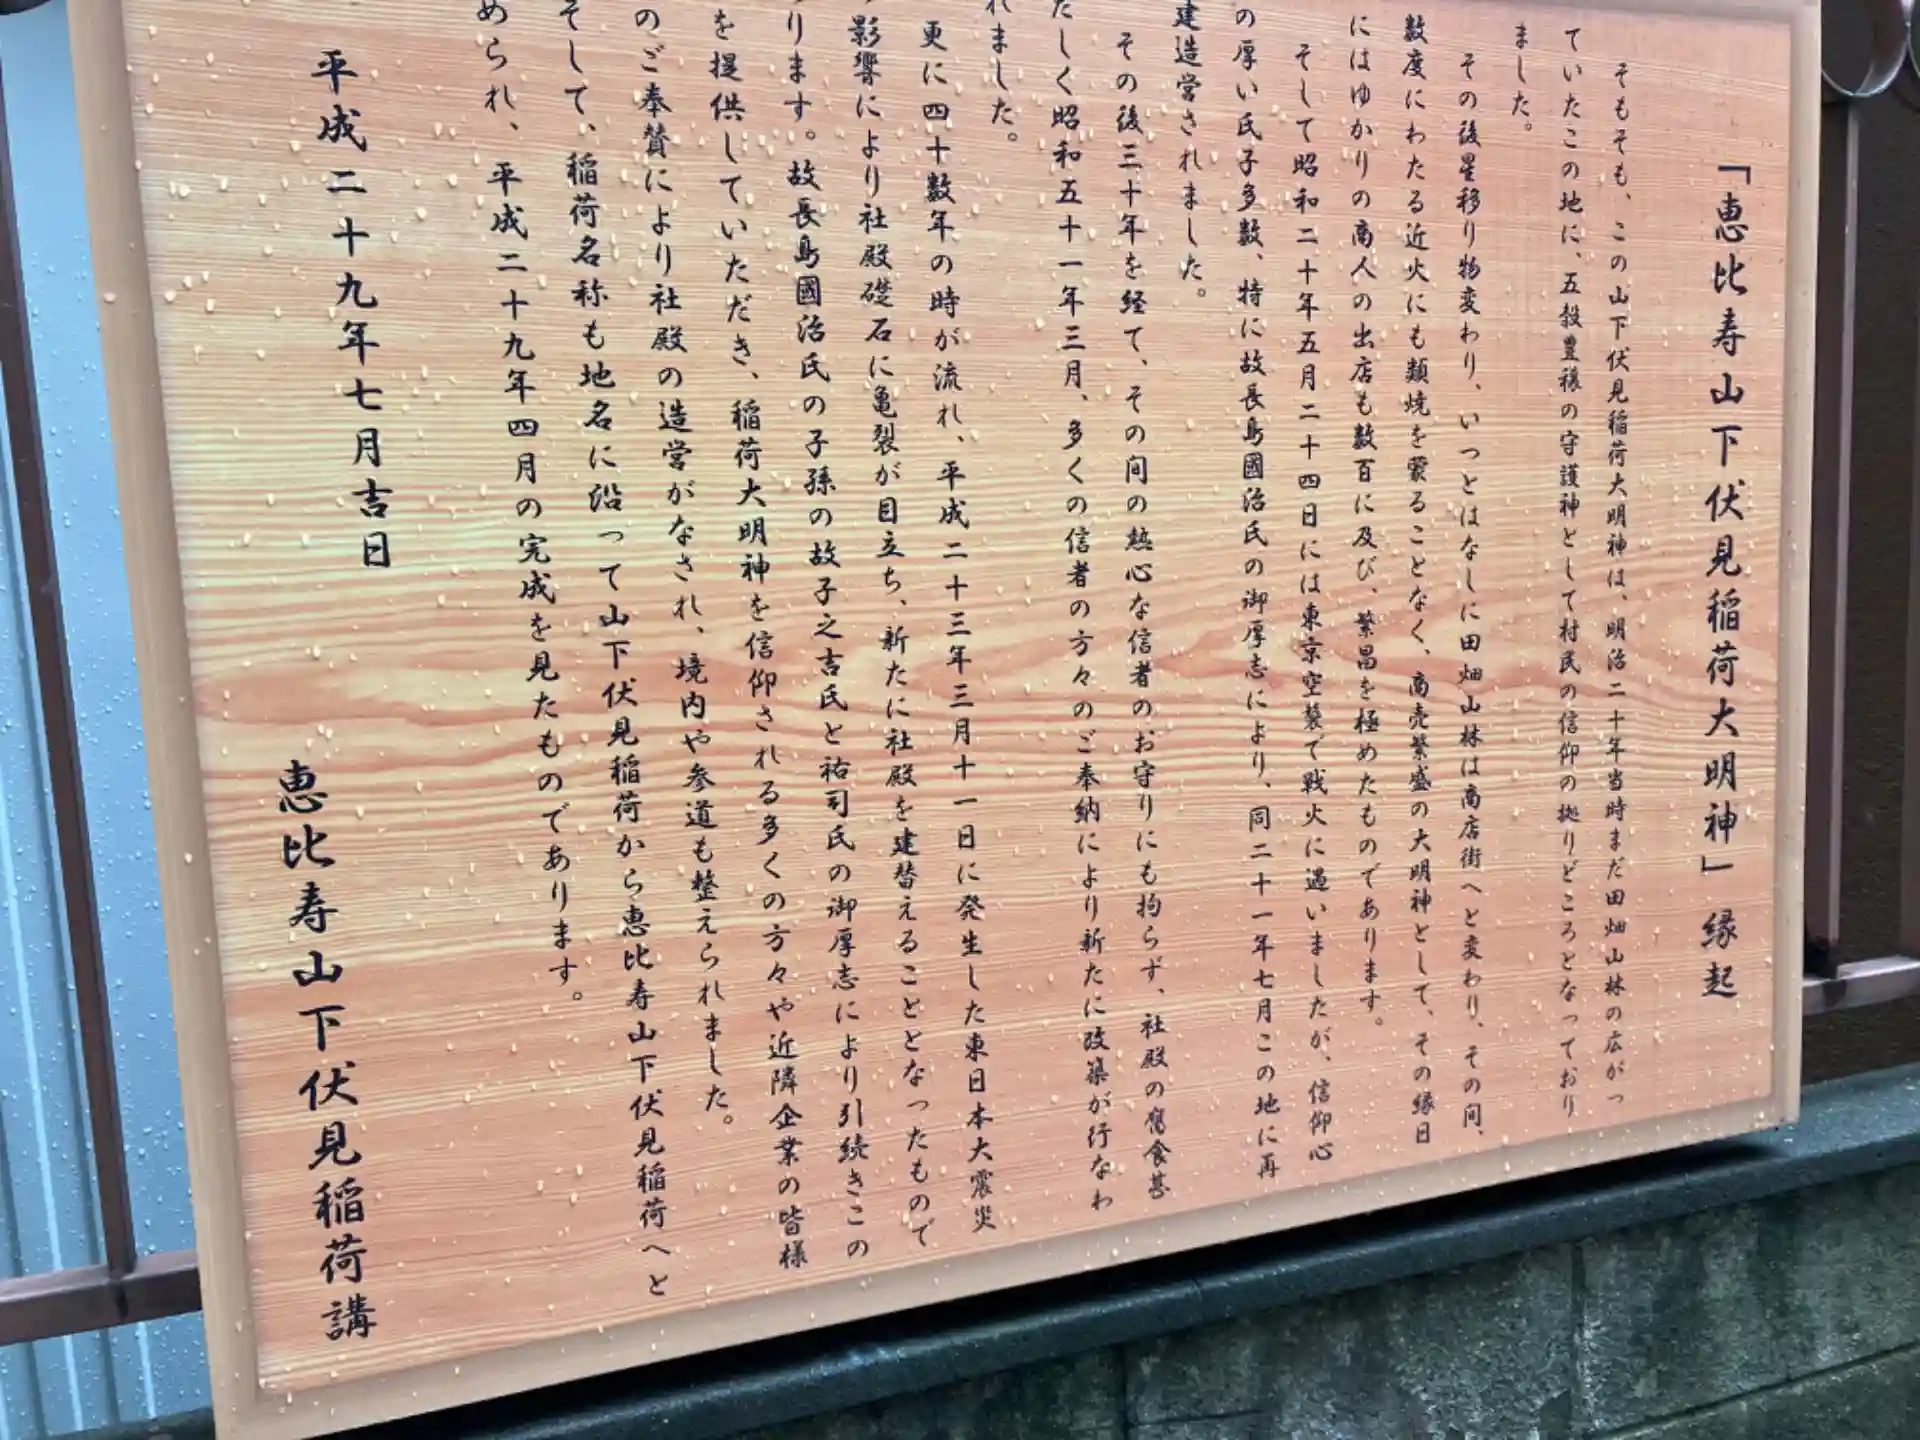 「恵比寿山下伏見稲荷大明神」縁起
そもそも、この山下伏見稲荷大明神は、明治二十年当時まだ田畑山林の広がっ
ていたこの地に、五穀豊穣の守護神として村民の信仰の拠りどころとなっており
ました。
その後星移り物変わり、いつとはなしに田畑山林は商店街へと変わり、その間、
数度にわたる近火にも類焼を蒙ることなく、商売繁盛の大明神として、その縁日
にはゆかりの商人の出店も数百に及び、繁昌を極めたものであります。
そして昭和二十年五月二十四日には東京空襲で戦火に遇いましたが、信仰心
の厚い氏子多数、特に故長島國治氏の御厚志により、同二十一年七月この地に再
建造営されました。
その後三十年を経て、その間の熱心な信者のお守りにも拘らず、社殿の腐食甚
だしく昭和五十一年三月、多くの信者の方々のご奉納により新たに改築が行なわ
れました。
更に四十数年の時が流れ、平成二十三年三月十一日に発生した東日本大震災
影響により社殿礎石に亀裂が目立ち、新たに社殿を建替えることとなったもので
ります。故長島國治氏の子孫の故子之吉氏と祐司氏の御厚志により引続きこの
を提供していただき、稲荷大明神を信仰される多くの方々や近隣企業の皆様
のご奉賛により社殿の造営がなされ、境内や参道も整えられました。
そして、稲荷名称も地名に沿って山下伏見稲荷から恵比寿山下伏見稲荷へと
められ、平成二十九年四月の完成を見たものであります。
平成二十九年七月吉日
恵比寿山下伏見稲荷講